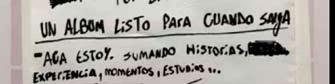 UN ALBUM LISTO PARA CUANDO SALGA
-ACA ESTOY. SUMANDO HISTORIAS,
EXPERIENCIA, MOMENTOS, ESTUDIOS...